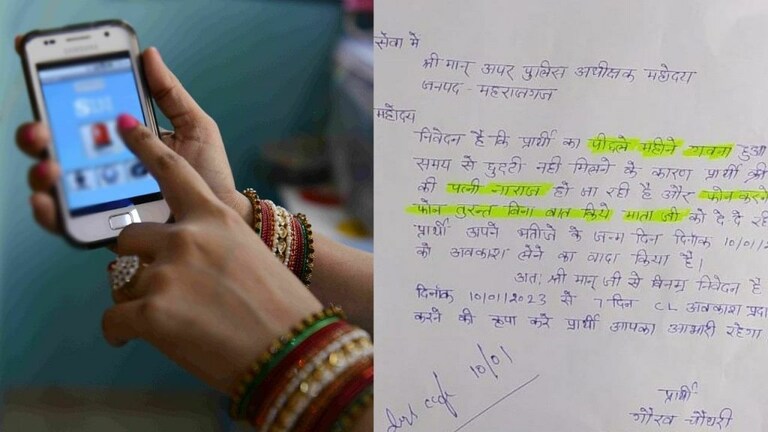 सेवा में
श्री मान् अपर पुलिस अधीक्षक महोदय
जनपद - महराजगंज
महोदय
निवेदन है कि प्रार्थी का पीदले महीने गवना हुआ
समय से छुट्टी नही मिलने के कारण प्रार्थी की
की पत्नी नाराज हो जा रही है और फोन करने
फोन तुरन्त बिना बात किये माता जी को दे दे
प्रार्थी अपने भतीजे के जन्म दिन दिनांक 10/01/2
को अवकाश लेने का वादा किया है।
अतः श्री मान् जी से विनम्र निवेदन है
दिनांक 10/01/2023 से 7 दिन CL अवकाश प्रदा
करने की कृपा करे प्रार्थी आपका आभारी रहेगा
10/01
प्रार्थी
गौरव चौधरी